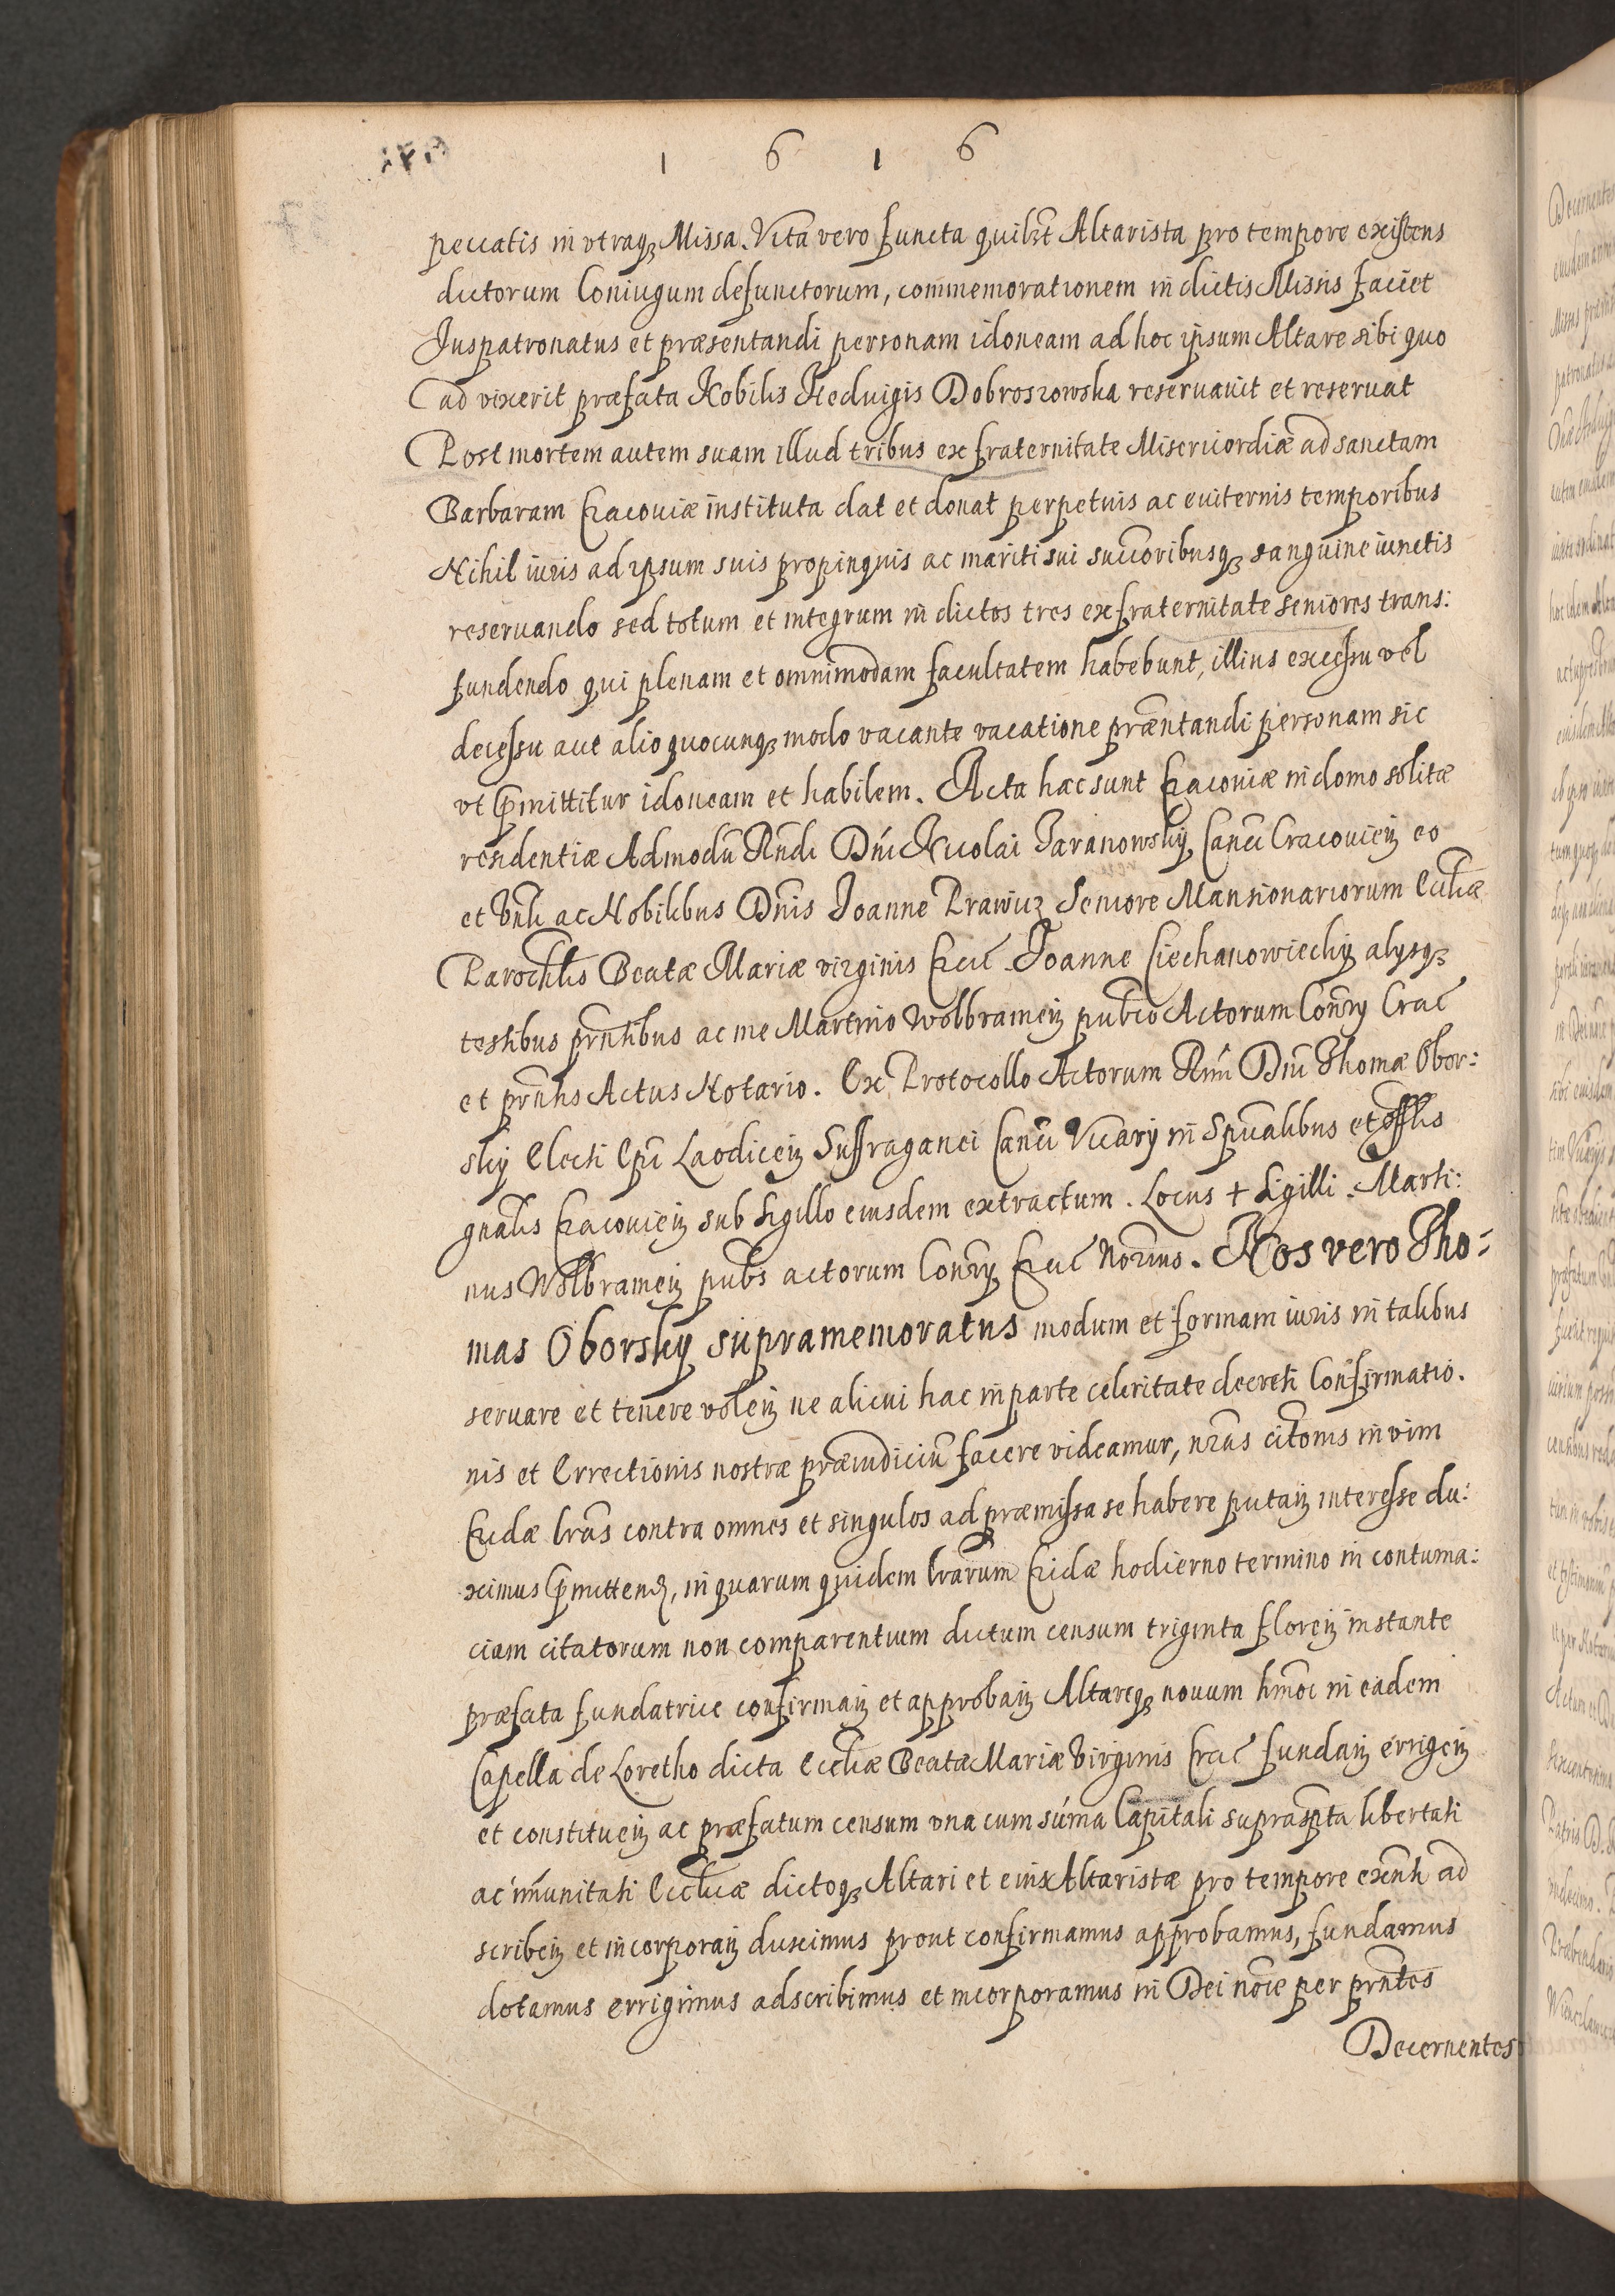 1 6 1 6
peccatis in vtraqȝ Missa. Vita vero functa quilȝt Altarista pro tempore existens
dictorum Coniugum defunctorum, commemorationem in dictis Missis faciet
Juspatronatus et præsentandi personam idoneam ad hoc ipsum Altare sibi quo
ad vixerit præfata Nobilis Heduigis Dobroszowska reseruauit et reseruat
Post mortem autem suam illud tribus ex fraternitate Misericordiæ ad sanctam
Barbaram Cracouiæ instituta dat et donat perpetuis ac euiternis temporibus
Nihil iuris ad ipsum suis propinquis ac mariti sui successoribusqȝ sanguine iunctis
reseruando sed totum et integrum in dictos tres ex fraternitate seniores trans:
fundendo qui plenam et omnimodam facultatem habebunt, illius excessu vel
decessu aut alio quocunqȝ modo vacante vacatione præntandi personam sic
vt præmittitur idoneam et habilem. Acta hæc sunt Cracouiæ in domo solitæ
residentiæ Admodũ Rndi Dñi Nicolai Taranowskÿ, Canci Cracouieñ eo
et Vnli ac Nobilibus Dñis Joanne Prawicz Seniore Mansionariorum Ecclie
Parochlis Beatæ Mariæ virginis Crac̃. Joanne Ciechanowieckÿ alÿsqȝ
testibus prñtibus ac me Martino Wolbrameñ publico Actorum Consry Crac̃
et prñtis Actus Notario. Ex Protocollo Actorum Rmi Dñi Thomæ Obor:
skÿ Electi Epi Laodiceñ Suffraganei Canci Vicarÿ in Spũalibus et Offlis
gnãlis Cracouieñ sub Sigillo eiusdem extractum. Locus + Sigilli. Marti:
nus Wolbrameñ pubs actorum Consry Crac̃ Norius. Nos vero Tho:
mas Oborskÿ supramemoratus modum et formam iuris in talibus
seruare et tenere voleñ ne alicui hac in parte celeritate decreti Confirmatio.
nis et Errectionis nostræ præiudiciũ facere videamur, nrãs citõnis in vim
Cridæ lrãs contra omnes et singulos ad præmissa se habere putañ interesse du:
ximus præmittend, in quarum quidem lrãrum Cridæ hodierno termino in contuma:
ciam citatorum non comparentium dictum censum triginta floreñ instante
præfata fundatrice confirmañ et approbañ Altareqȝ nouum hmõi in eadem
Capella de Loretho dicta Eccliæ Beatæ Mariæ Virginis Crac̃ fundañ errigeñ
et constitueñ ac præfatum censum vna cum sũma Capitali suprascpta libertati
ac im̃unitati Eccliæ dictoqȝ Altari et eius Altaristæ pro tempore exñti ad
scribeñ et incorporañ duximus prout confirmamus approbamus, fundamus
dotamus errigimus adscribimus et incorporamus in Dei nõie per prñtes
Decernentes